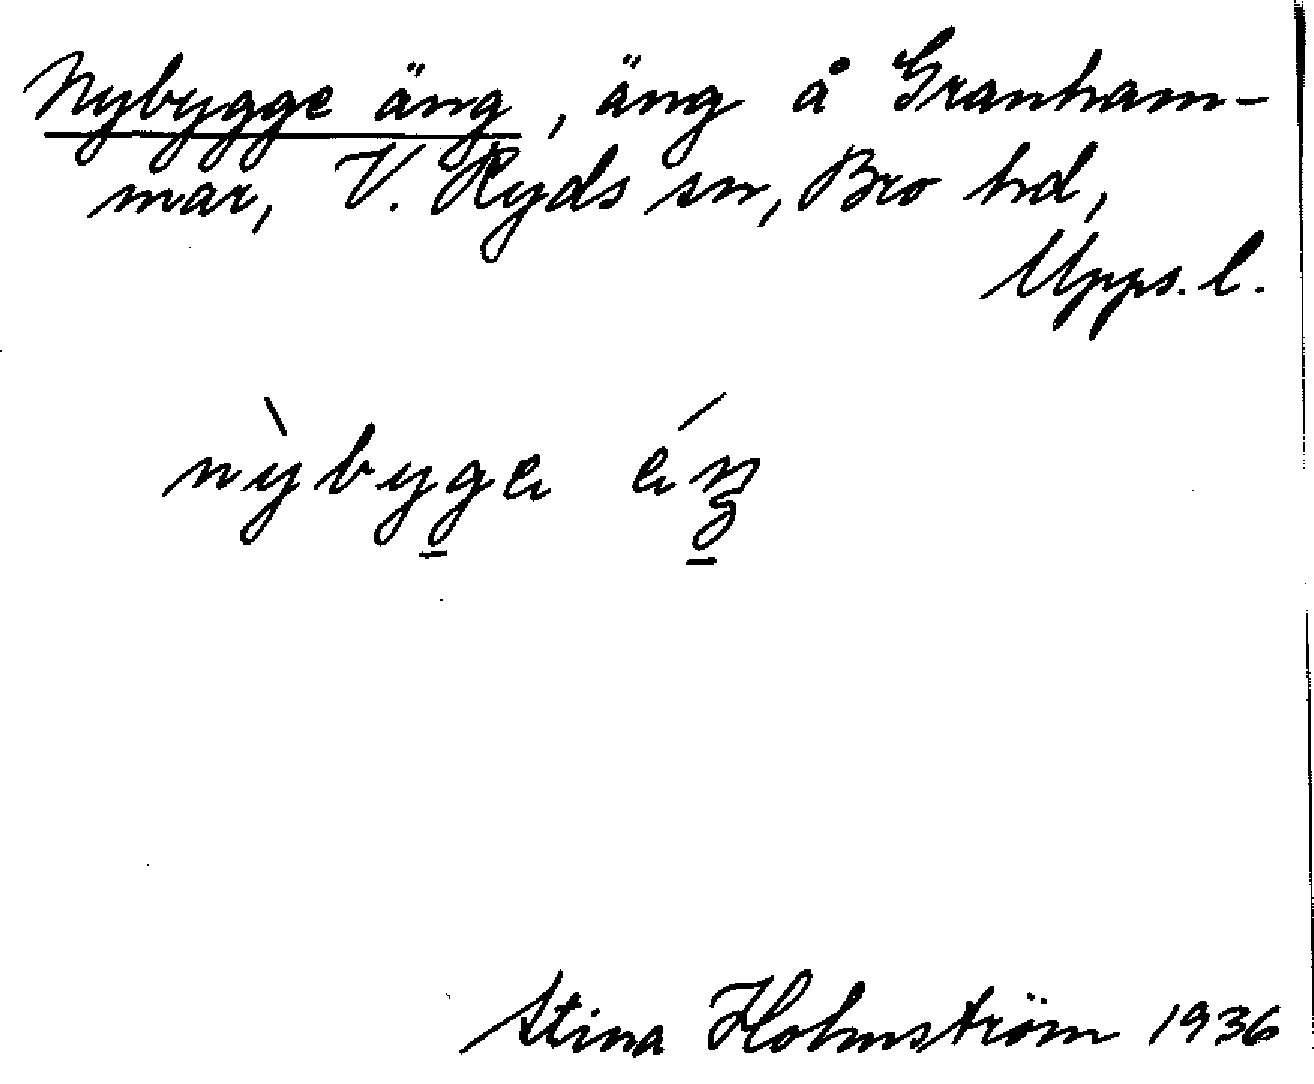 Nybygge äng, äng å Granham-
mar, V. Ryds sn, Bro hd,
Upps. l.
nỳbyge éŋ
Stina Holmström 1936